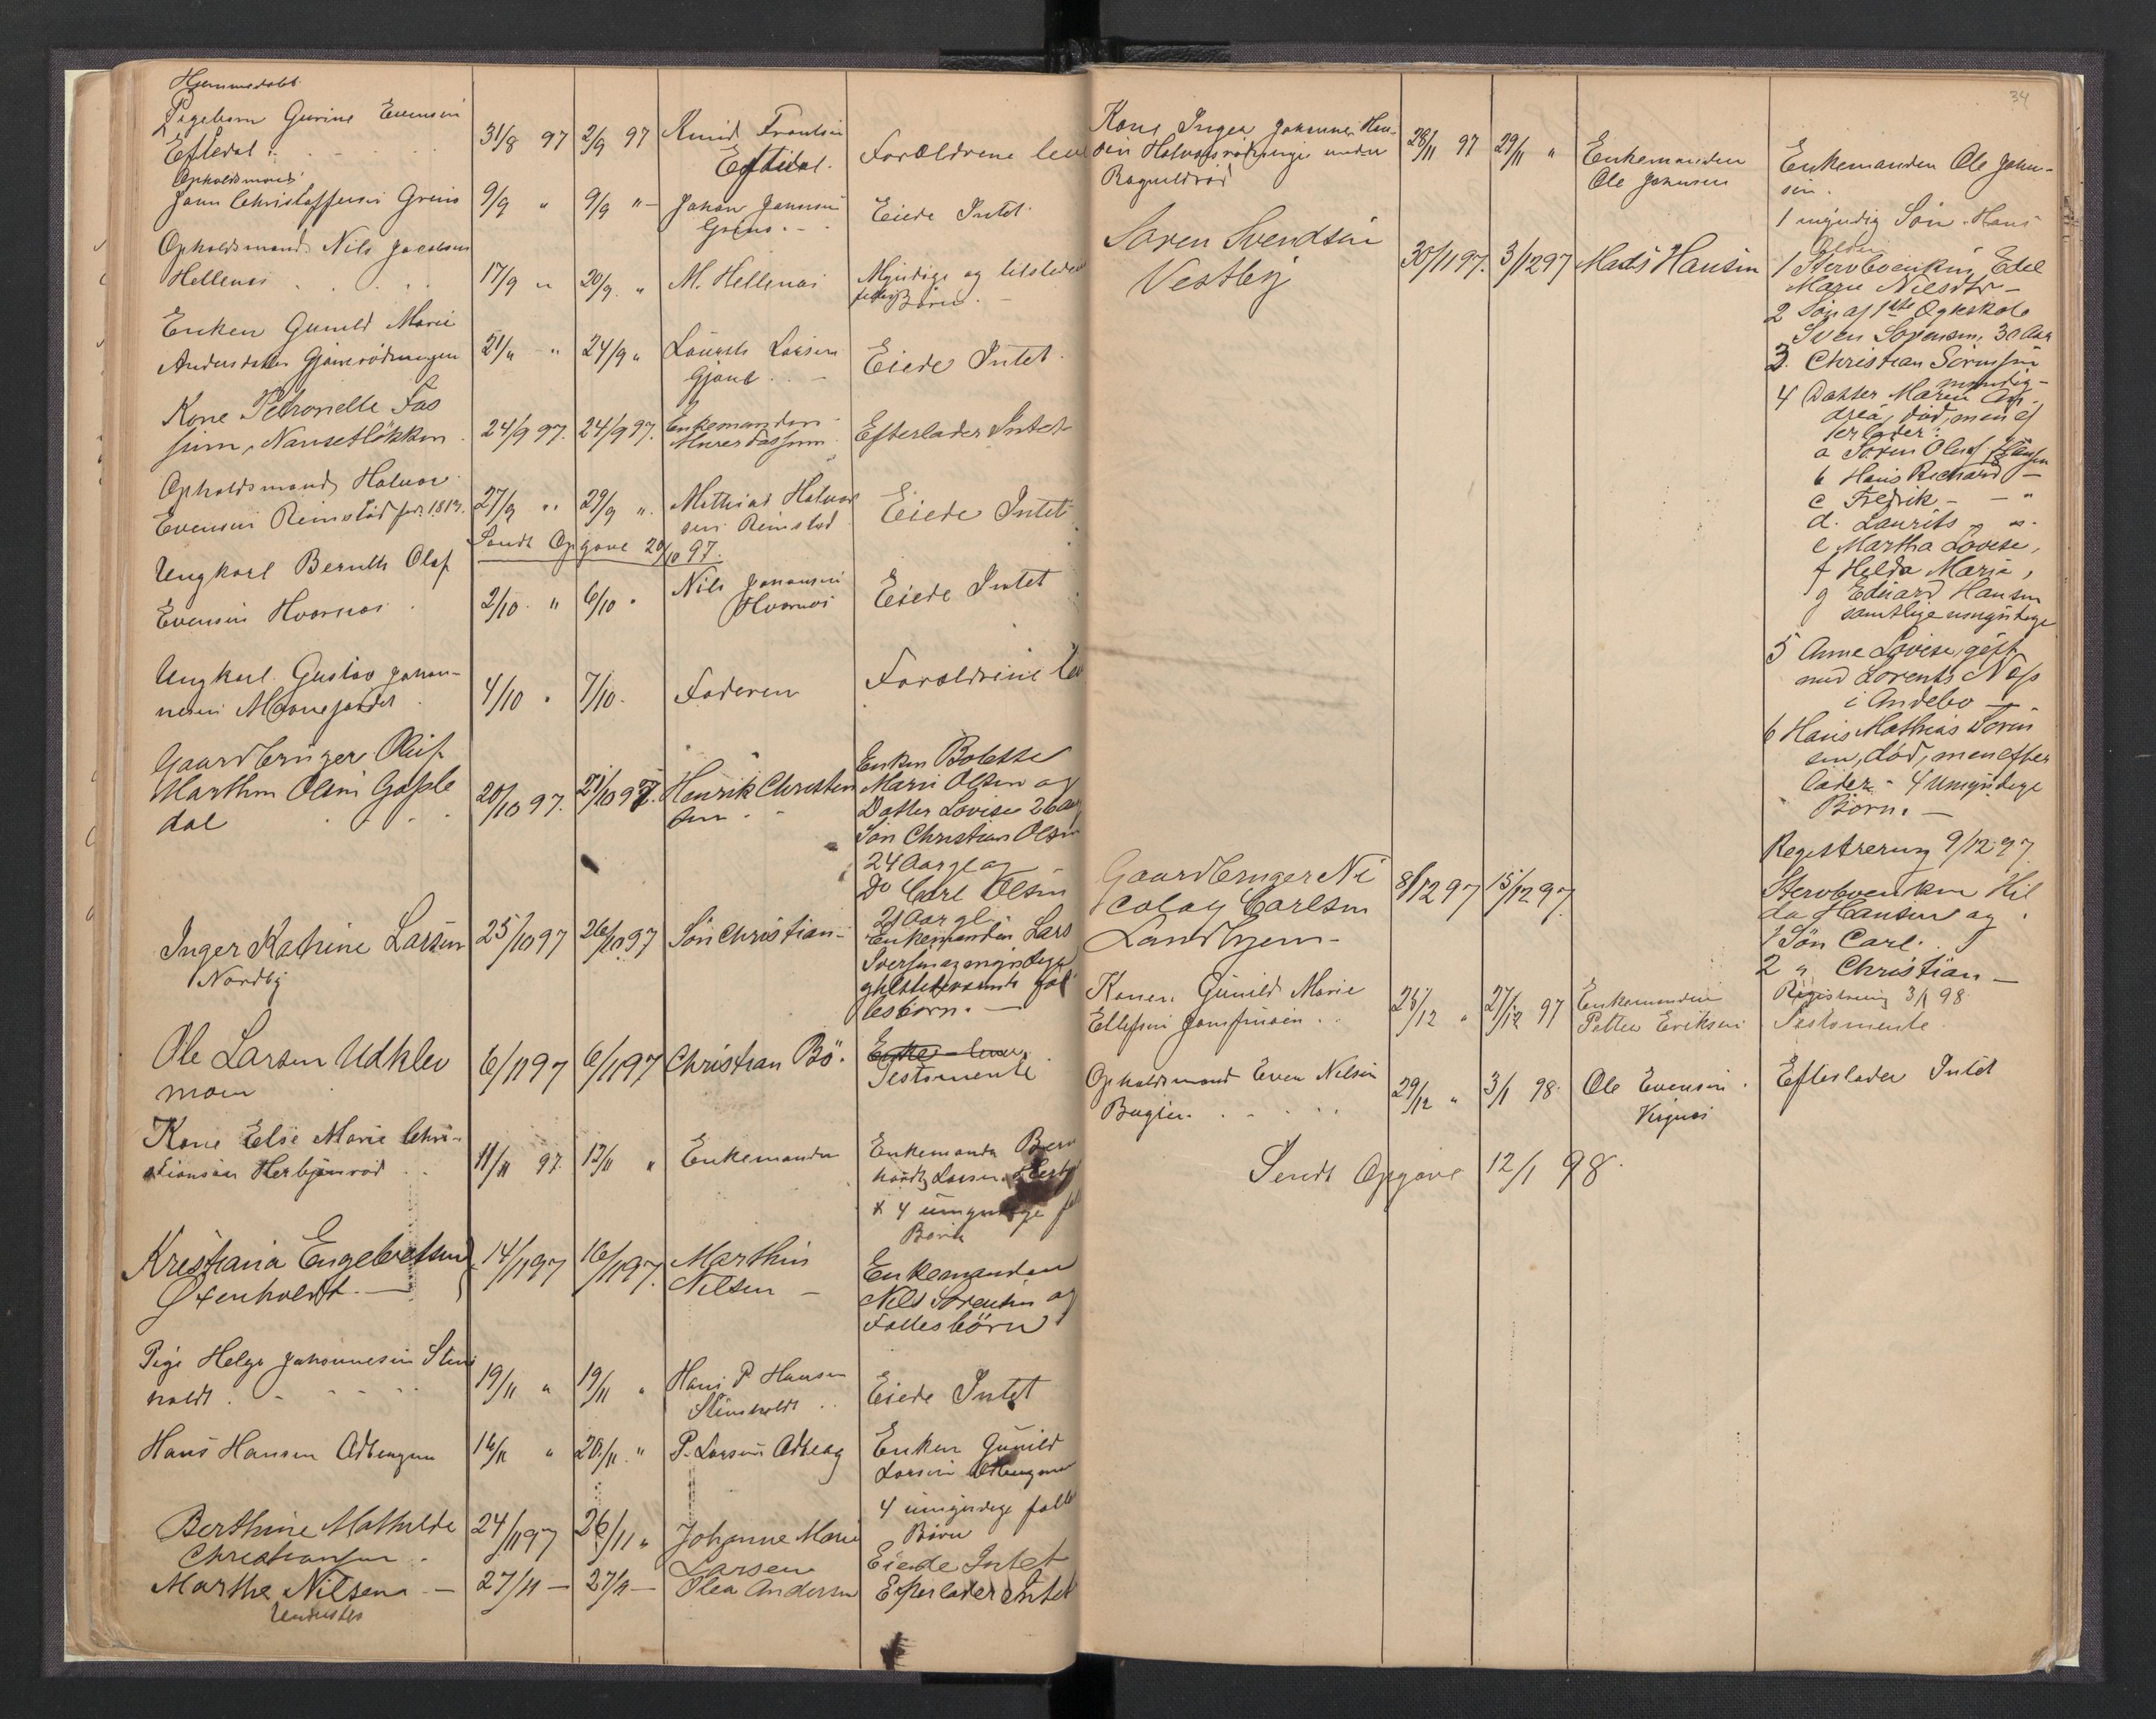 Hjemmedøbt
Pigebarn Gurine Evensen
Eftedal
31/8 97 2/9 97 Knud Frantsen
Eftedal.
Forældrene leve
Opholdsmand
Jann Christoffersen Grein
9/9 " 9/9 "
Johan Jannsen
Eiede Intet
Opholdsmand Nils Jacobsen
Hellenes
17/9 " 20/9 " M. Hellenes
Myndige og tilstede
Børn.
Enken Gunild Marie
Andersdatter
21/9 " 24/9 "
Laurits Larsen
Gjone
Eiede Intet
Kone Petronelle Fos
sum, Nansetløkken
24/9 97. 24/9 97.
Enkemanden
Murer Fossum
Efterlader Intet
Opholdsmand Halvor
Evensen Remstad født 1813.
27/9 " 29/9 "
Mathias Halvor
sen Remstad
Eiede Intet
Sendt Opgave 20/10 97.
Ungkarl Bernth Olaf
Evensen Hvarnes
2/10 " 6/10 "
Nils Johansen
Hvarnes
Eiede Intet
Ungkarl Gustav Johan-
nesen
4/10 " 7/10.
Faderen
Forældrene lev
Gaardbruger Oluf
Marthin Olsen Gople
dal
20/10 97. 21/10 97. Henrik Christen
sen
Enken Bolette
Marie Olsen og
Datter Lovise 26 Aar
Søn Christian Olsen
24 Aar gl og
Do Carl Olsen
21 Aar gl.
Inger Katrine Larsen
Nordby
25/10 97 26/10 97 Søn Christian
Enkemanden Lars
Iversen og myndige
lesbørn.
Ole Larsen Udklev
moen
6/11 97 6/11 97 Christian Bø.
Enke lever
Testamente
Kone Else Marie Chri-
stiansen Herbjørnrød
11/11 97 13/11 "
Enkemanden
Enkemanden Bern
hardt Larsen
& 4 umyndige
Børn
Kristiania Engebretsen
Øxenholdt.
14/11 97 16/11 97. Marthin
Nilsen
Enkemanden
Nils Sørensen og
Fællesbørn
Pige Helga Johannesen Sten
holdt.
19/11 " 19/11 "
Hans P Hansen
Stensholdt
Eiede Intet
Hans Hansen Askengen
16/11 " 20/11 "
P. Larsen
Enken Gunild
Larsen
4 umyndige fælles
Børn
Berthine Mathilde
Christiansen
24/11 97 26/11 " Johanne Marie
Larsen
Eiede Intet
Marthe Nilsen
27/11 27/11 Olea Andersen
Efterlader Intet
34
Kone Ingea Johanne Han-
sen under
Ragnildrød
28/11 97 29/11 "
Enkemanden
Ole Johnsen
Enkemanden Ole John-
sen.
1 myndig Søn. Hans
Olsen
Søren Svendsen
Vestby
30/11 97. 3/12 97 Mads Hansen
1 Stervboenken Edel
Marie Nilsdtr
2 Søn af 1ste Ægteskab
Sven Sørensen, 30 Aar
3. Christian Sørensen
myndig
4 Datter Maren An-
drea, død, men ef
terlader:
a Søren Oluf Hansen
b Hans Richard
c Fredrik
d. Laurits
e Martha Lovise,
f Helda Marie,
g Eduard Hansen
samtlige umyndige
5 Anne Lovise, gift
med Lorents Næss
i Andebo
6 Hans Mathias Søren
sen, død, men efter
lader 4 umyndige
Børn.
Registrering 9/12 97
Gaardbruger Ni
colay Carlsen
Landhjem
8/12 97 15/12 97.
Stervboenken Hil
da Hansen og
1 Søn Carl.
2 " Christian
Registrering 3/1 98.
Konen Gunild Marie
Ellefsen
27/12 97
Enkemanden
Petter Eriksen
Testamente
Opholdsmand Even Nilsen
Bugen
29/12 " 3/1 98.
Ole Evensen
Efterlader Intet
Sendt Opgave 12/1 98.